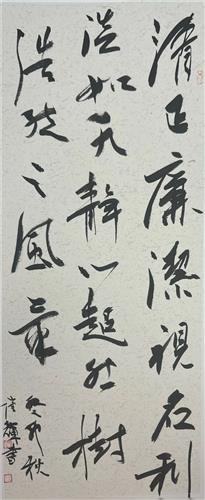 清正廉潔視名利
淡如天靜心超然樹
浩然之風氣
癸卯秋
輝書